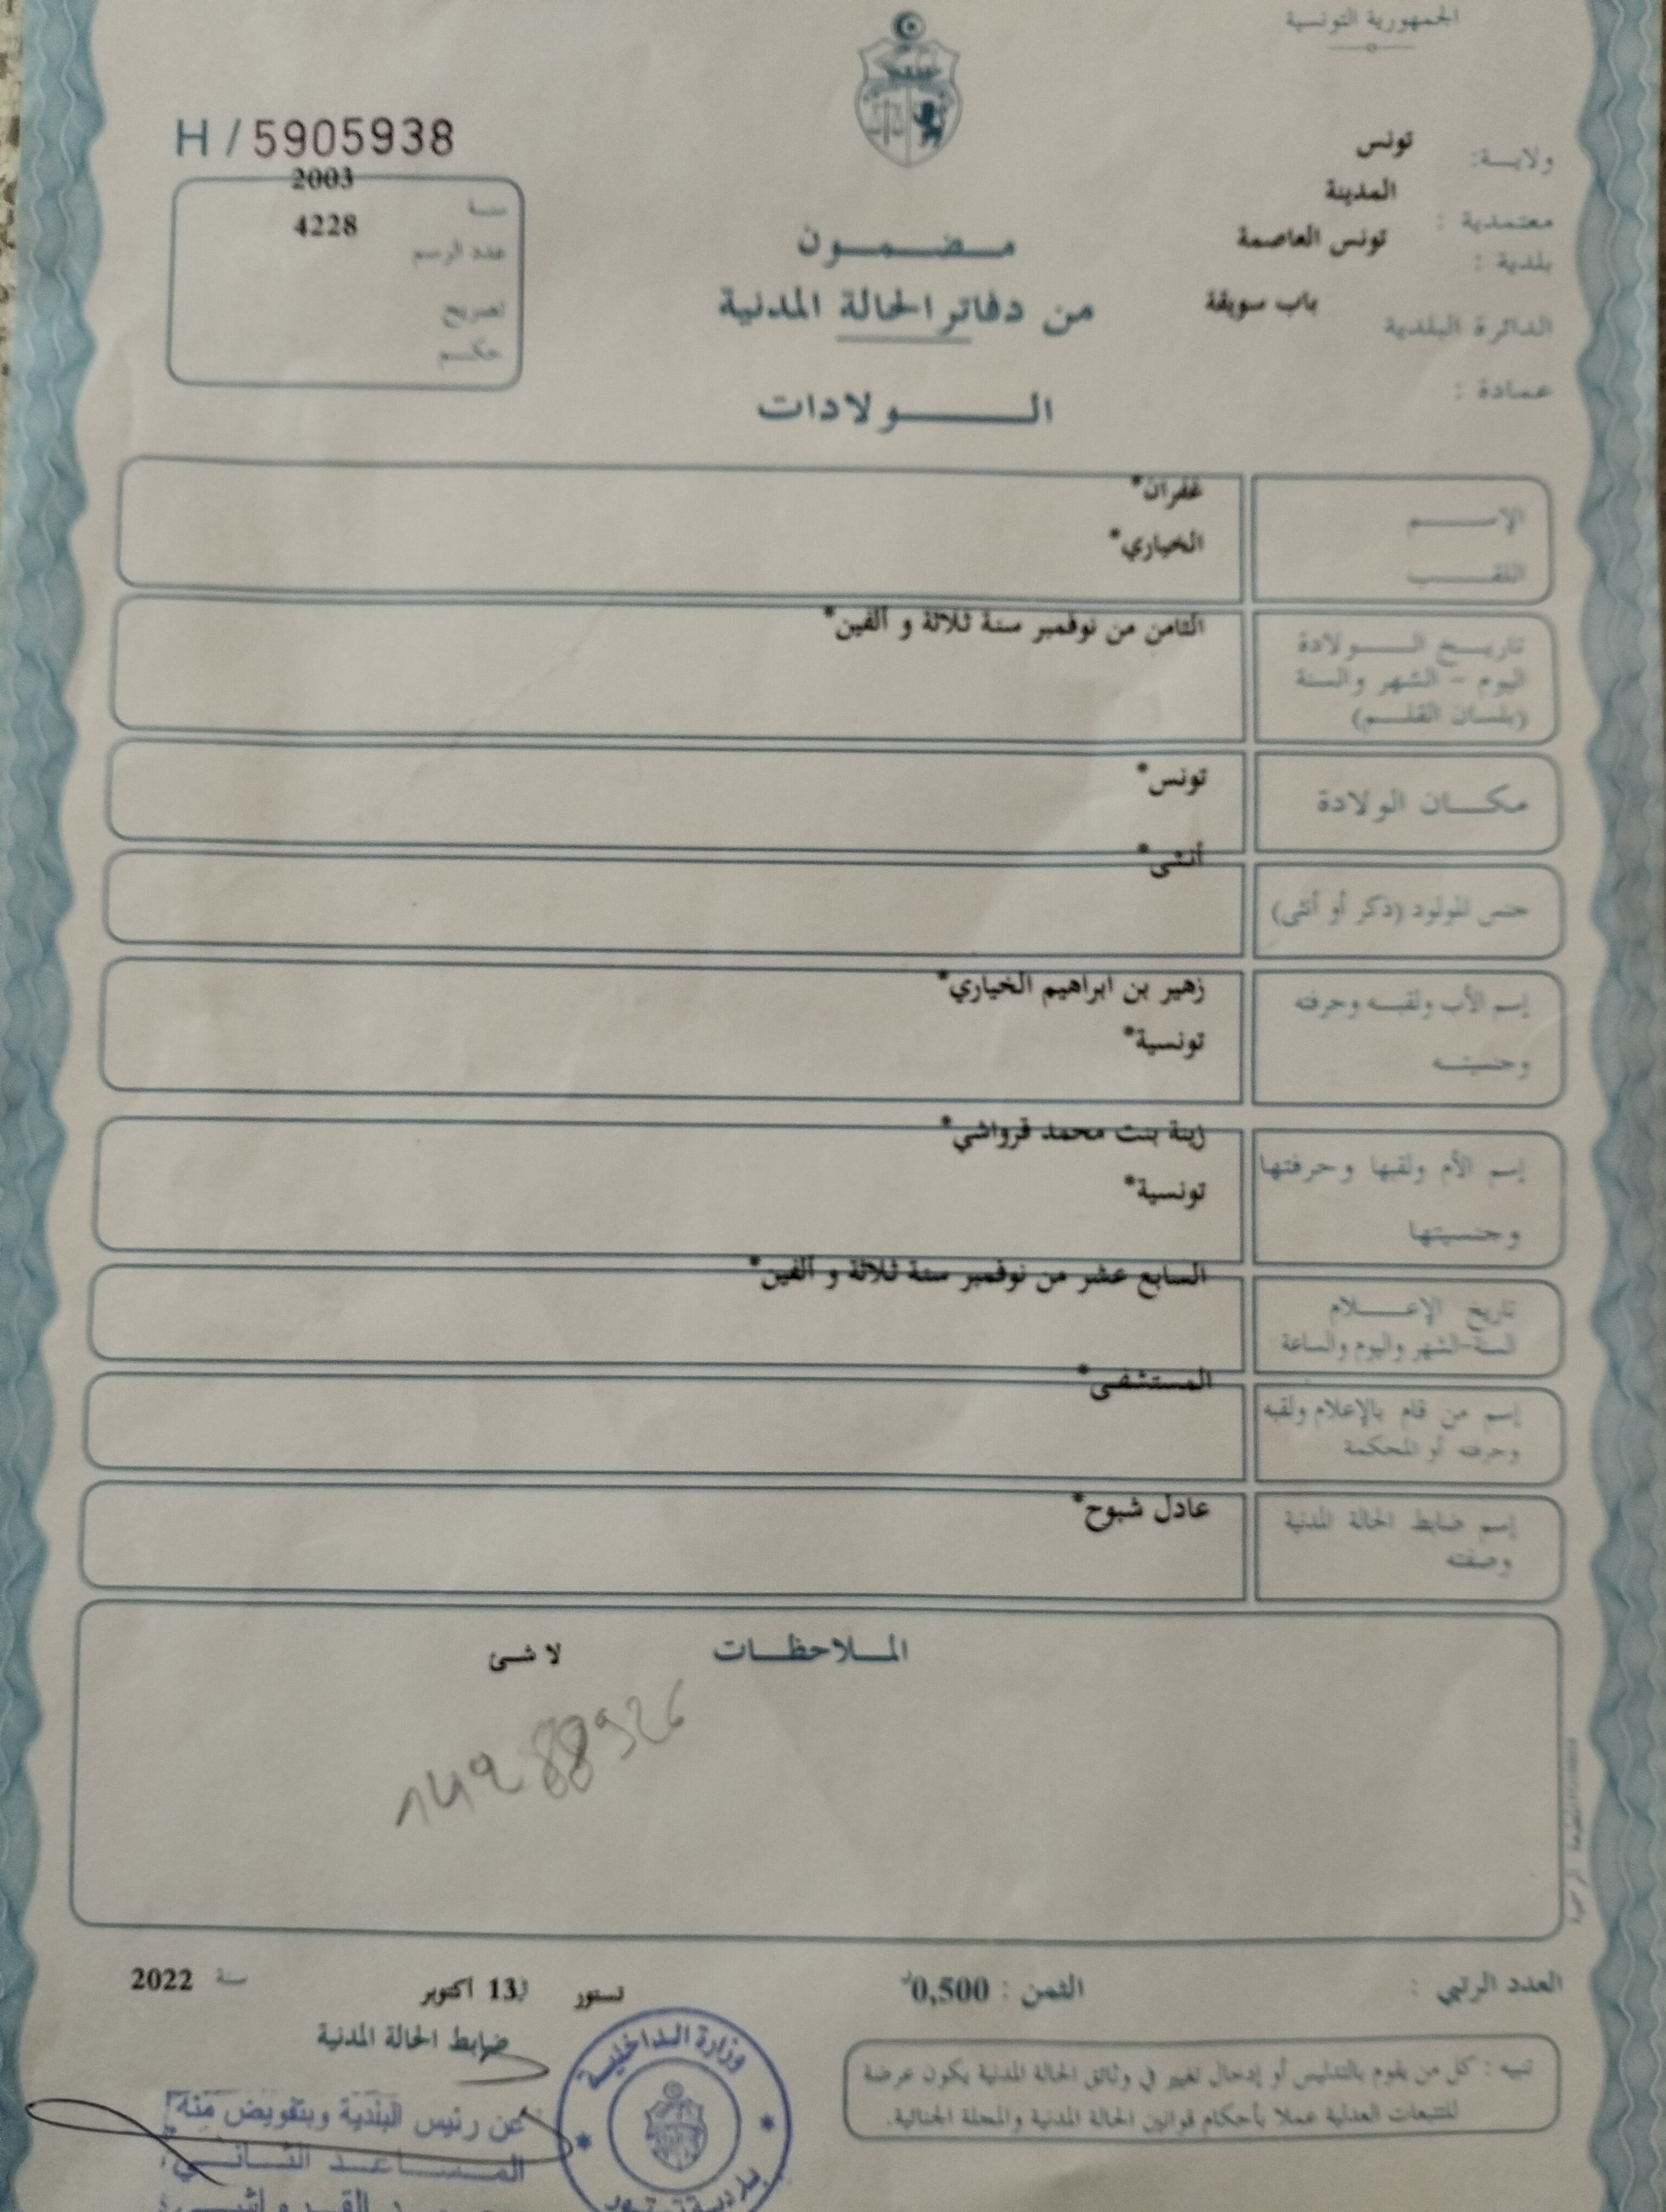 الجمهورية التونسية
H / 5905938
ولاية: تونس
معتمدية : المدينة
بلدية : تونس العاصمة
الدائرة البلدية باب سويقة
عمادة :
سنة 2003
عدد الرسم 4228
تصريح
حكم
مضمون
من دفاتر الحالة المدنية
الولادات
الإسم غفران*
اللقب الخياري*
تاريخ الولادة الثامن من نوفمبر سنة ثلاثة و الفين*
اليوم - الشهر والسنة
(بلسان القلم)
مكان الولادة تونس*
جنس المولود (ذكر أو أنثى) أنثى*
إسم الأب ولقبه وحرفته زهير بن ابراهيم الخياري*
وجنسيته تونسية*
إسم الأم ولقبها وحرفتها زينة بنت محمد قرواشي*
وجنسيتها تونسية*
تاريخ الإعلام السابع عشر من نوفمبر سنة ثلاثة و الفين*
السنة-الشهر واليوم والساعة
إسم من قام بالإعلام ولقبه المستشفى*
وحرفته أو المحكمة
إسم ضابط الحالة المدنية عادل شبوح*
وصفته
الملاحظات لا شئ
14288926
العدد الرتبي : الثمن : 0,500د تستور في 13 اكتوبر سنة 2022
ضابط الحالة المدنية
تنبيه : كل من يقوم بالتدليس أو إدخال تغيير في وثائق الحالة المدنية يكون عرضة
للتتبعات العدلية عملا بأحكام قوانين الحالة المدنية والمجلة الجنائية.
وزارة الداخلية
بلدية تستور
عن رئيس البلدية وبتفويض منه
المساعد الثاني